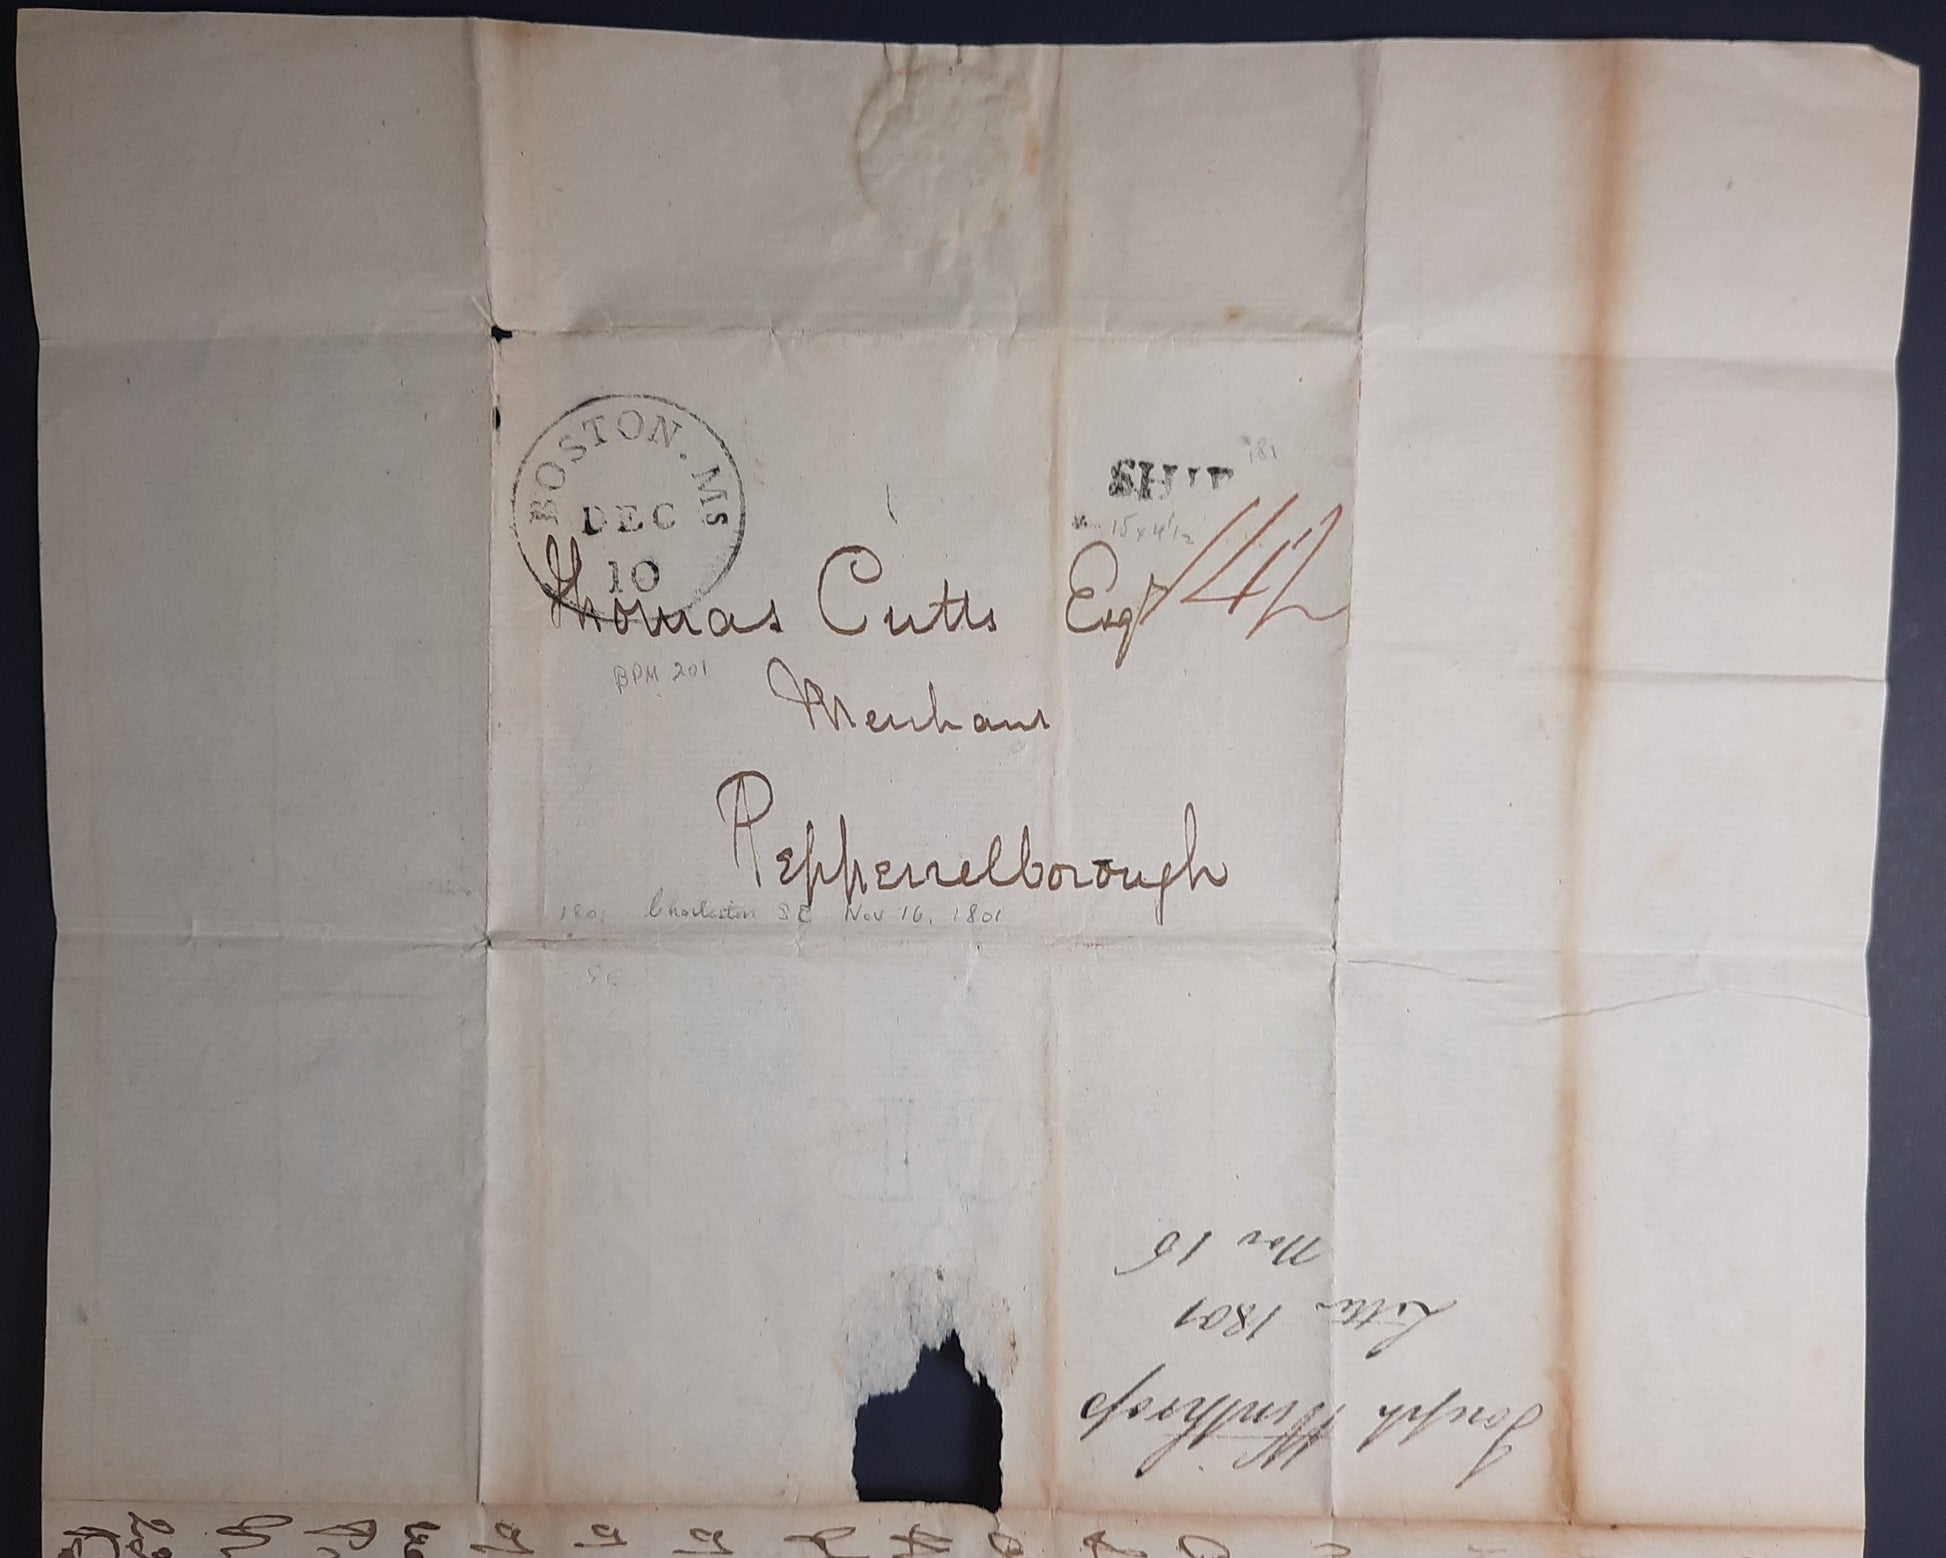 BOSTON. Ms
DEC
10
SHIP
181
15 x 4 1/2
Thomas Cutts Esqr
42
BPM 201
Merchant
Pepperrelborough
1801 Charleston SC Nov 16. 1801
SC
Joseph Winthrop
Letter 1801
Nov 16